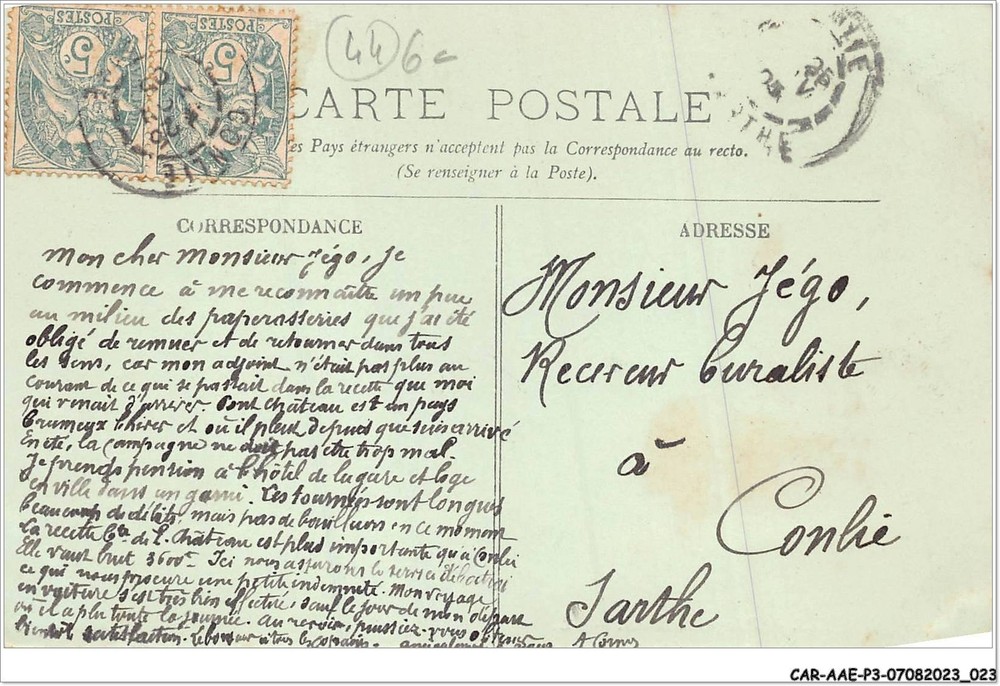 POSTES 5c
POSTES 5c
CONLIE
44 6-
SARTHE
CARTE POSTALE
les Pays étrangers n'acceptent pas la Correspondance au recto.
(Se renseigner à la Poste).
CORRESPONDANCE
Mon cher Monsieur Jégo, je
commence à me reconnaître un peu
au milieu des paperasseries que j'ai été
obligé de remuer et de retourner dans tous
les sens, car mon adjoint n'était pas plus au
courant de ce qui se passait dans la recette que moi
qui venait d'arriver. Pont château est un pays
brumeux l'hiver et où il pleut depuis que suis arrivé
En été, la campagne ne doit pas être trop mal.
Je prends pension à l'hôtel de la gare et loge
en ville dans un garni. Les tournées sont longues
beaucoup de débits, mais pas de bouilleurs en ce moment
La recette Bte de P. Château est plus importante qu'à Conlie
Elle vaut brut 3600f- Ici nous assurons le service
ce qui nous procure une petite indemnité. Mon voyage
en voiture s'est très bien effectué, sauf le jour de mon départ
où il a plu toute la journée. Au revoir, puissiez-vous obtenir
bientôt satisfaction. Le bonjour à tous les copains.
ADRESSE
Monsieur Jégo,
Receveur buraliste
à
Conlie
Sarthe
CAR-AAE-P3-07082023_023